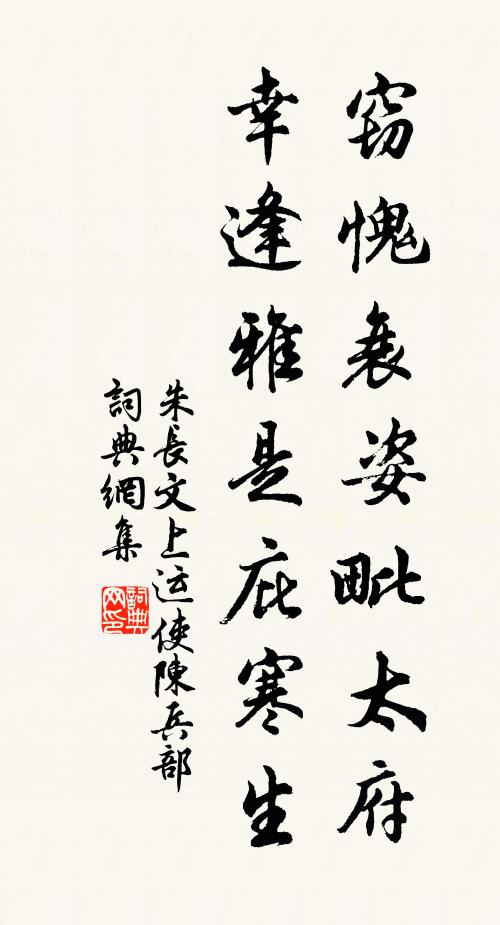 窃愧衰姿毗太府
幸逢雅是庇寒生
朱長文上运使陳兵部
詞典網集
詞典网印